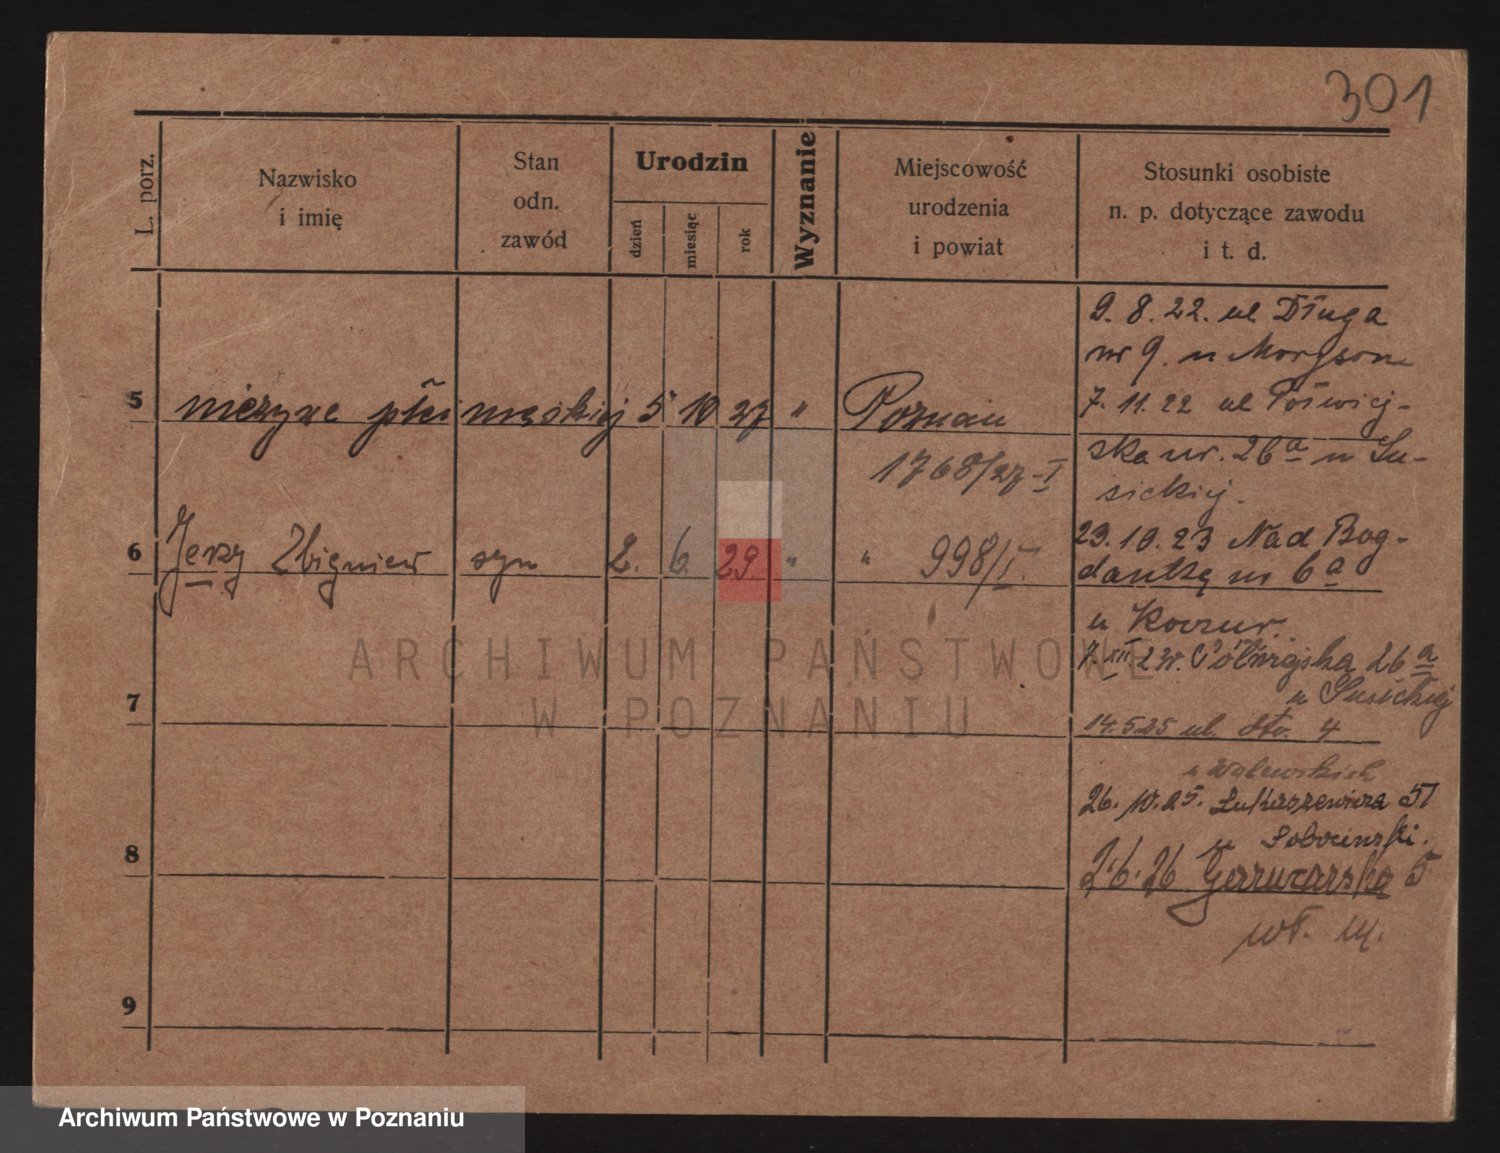 301
L. porz.
Nazwisko
i imię
Stan
odn.
zawód
Urodzin
dzień
miesiąc
rok
Wyznanie
Miejscowość
urodzenia
i powiat
Stosunki osobiste
n. p. dotyczące zawodu
i t. d.
5 nieżywe płci męskiej 5 10 27 " Poznań
1768/27-I
6 Jerzy Zbigniew syn 2. 6. 29. " " 998/I.
7
8
9
9. 8. 22. ul Długa
nr 9. u
7. 11. 22 ul Półwiej-
ska nr. 26a u Su-
sickiej.
23. 10. 23 Nad Bog-
danką nr 6a
u
7. XII 23r. Półwiejska 26a
u Susickiej
14.5.25 ul. 4
u Walewskich
26. 10. 25. Łukaszewicza 51
u Sobocinski.
2.6.26 5
wł. m.
ARCHIWUM PAŃSTWOWE
W POZNANIU
Archiwum Państwowe w Poznaniu